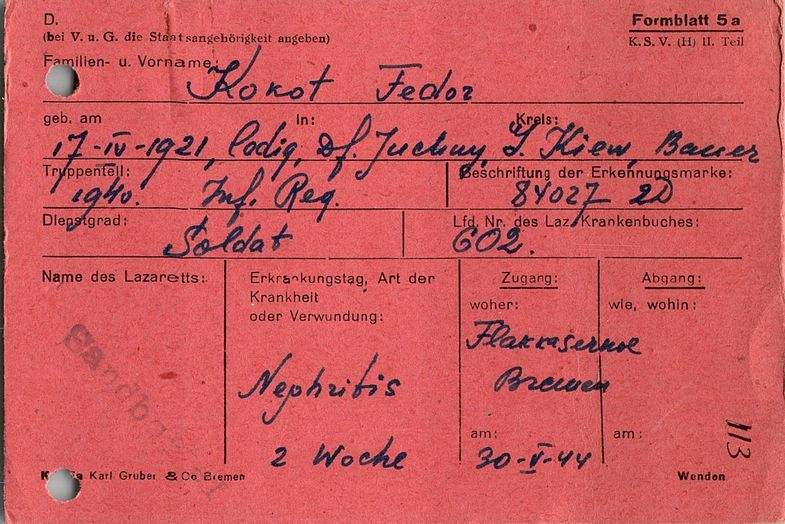 D.
Formblatt 5a
(bei V. u. G. die Staatsangehörigkeit angeben)
K. S. V. (H) II. Teil
Familien- u. Vorname:
Kokot Fedor
geb. am In: Kreis:
17-IV-1921, ledig, Df. Juchny, G. Kiew, Bauer
Truppenteil: Beschriftung der Erkennungsmarke:
1940. Inf. Reg. 84027 2D
Dienstgrad: Lfd. Nr. des Laz. Krankenbuches:
Soldat 602.
Name des Lazaretts:
Sandbostel
Erkrankungstag, Art der
Krankheit
oder Verwundung:
Nephritis
2 Woche
Zugang:
woher:
Flakkaserne
Bremen
am:
30-V-44
Abgang:
wie, wohin:
am:
113
Karl Gruber & Co Bremen
Wenden